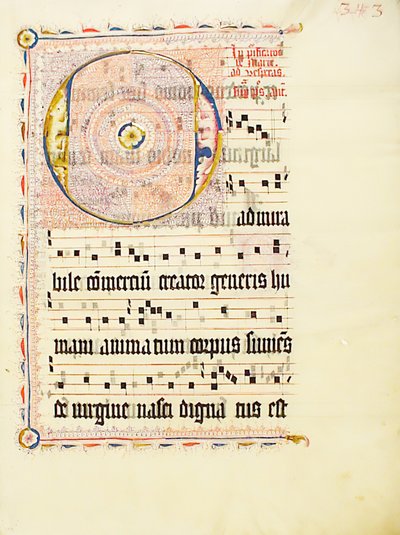 343
ad vesperas.
O admira
bile cōmerciū creator generis hu
mani animatum corpus sumēs
de virgine nasci digna tus est